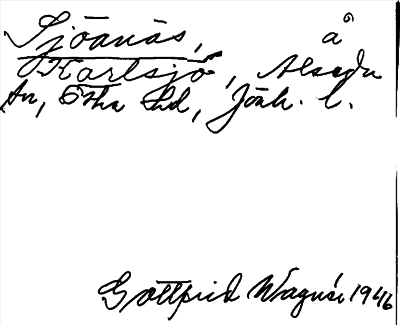 Sjöanäs, å
Karlsjö, Alseda
sn, Östra hd, Jönk. l.
Gottfrid Wagnér 1946